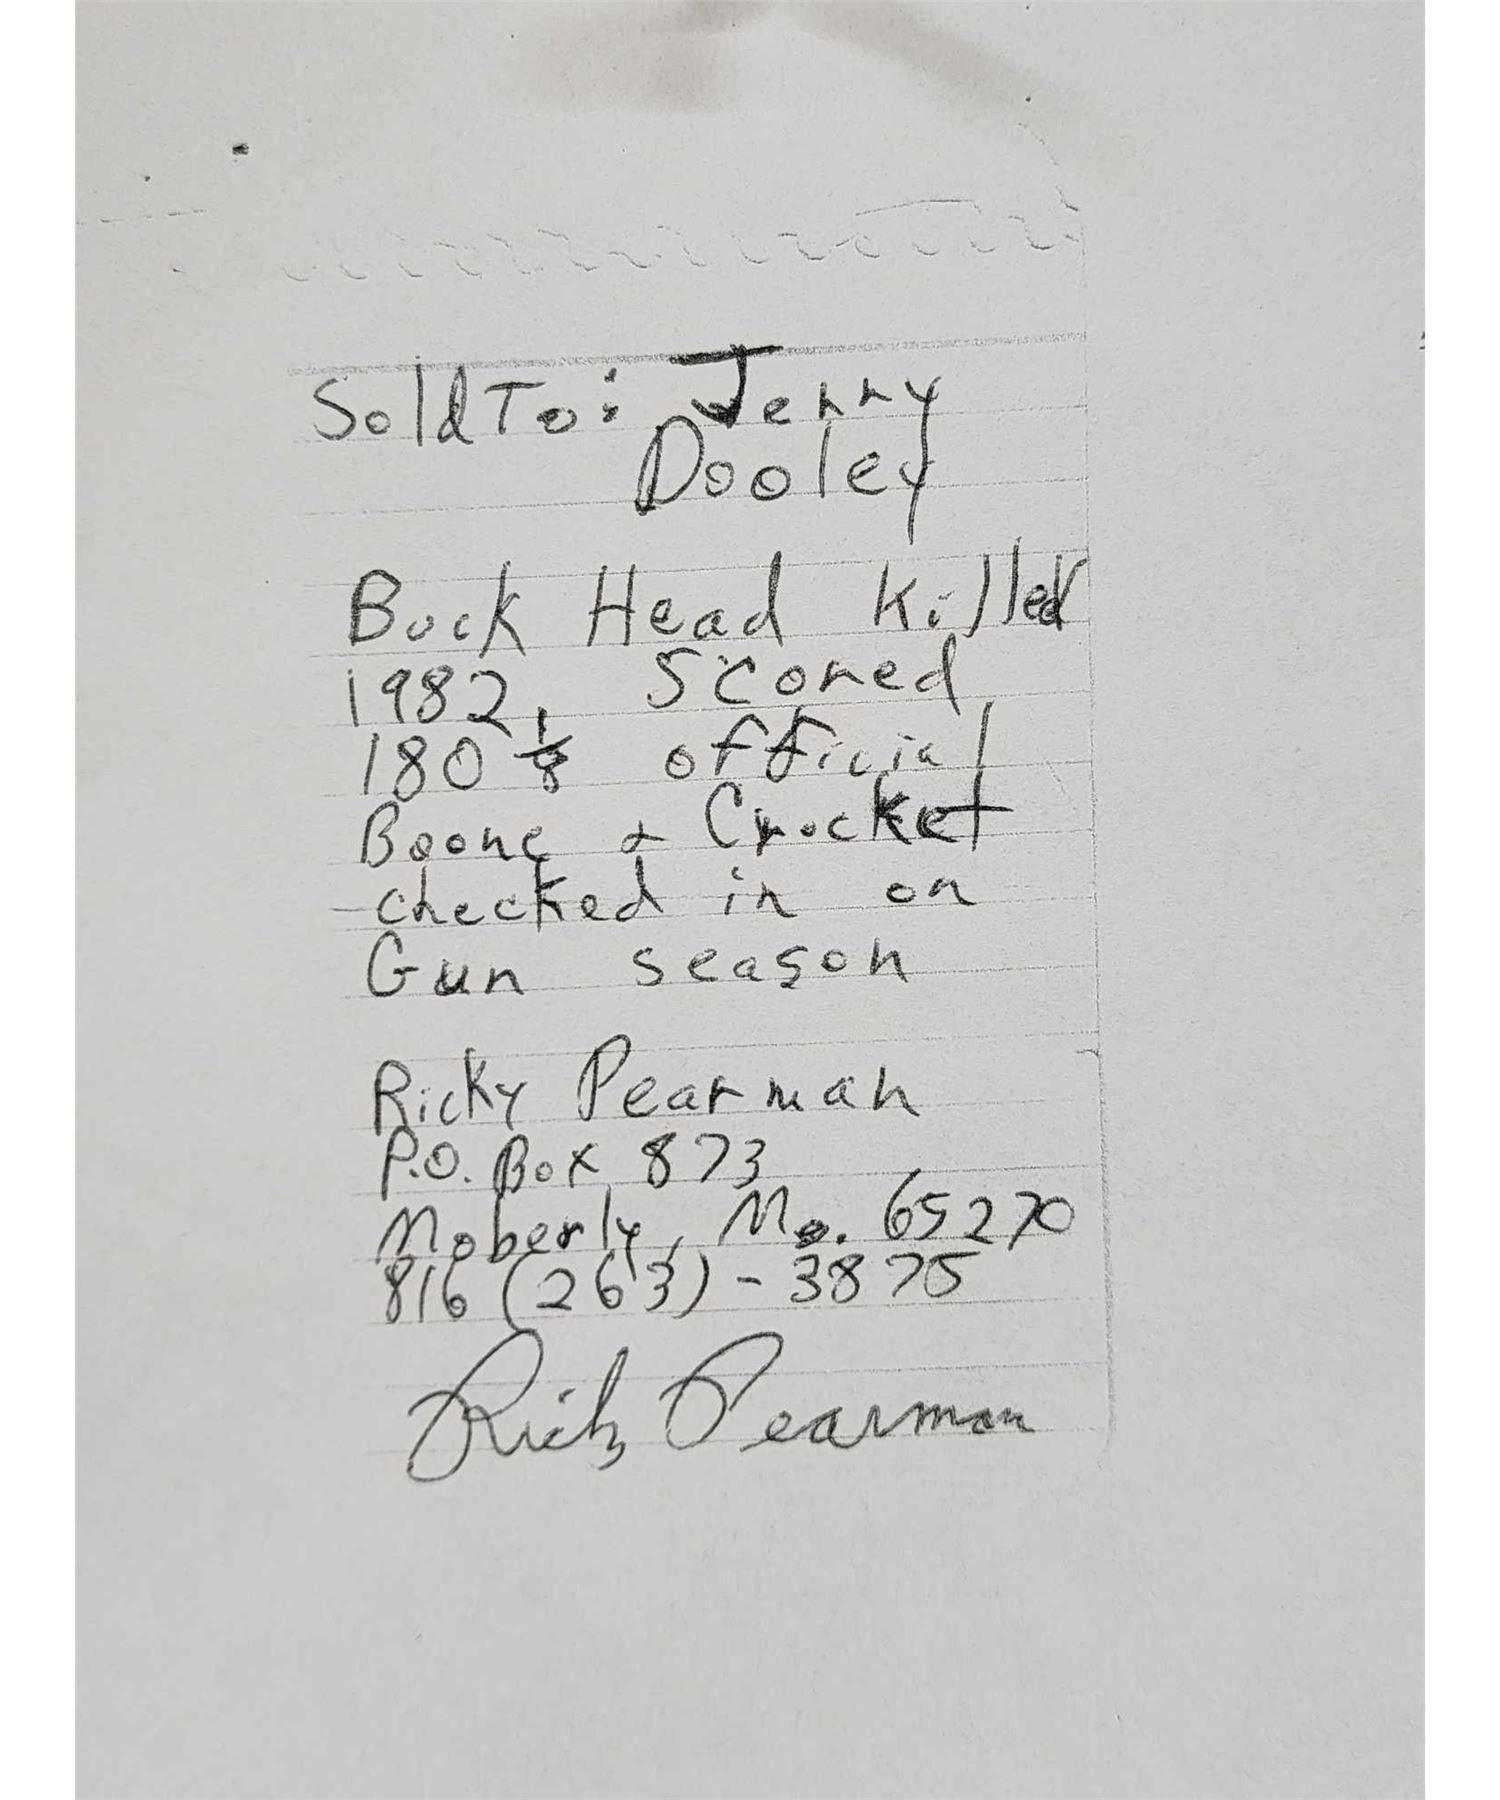 Sold To: Jerry
Dooley
Buck Head Killed
1982, Scored
180 1/8 official
Boone & Crocket
checked in on
Gun season
Ricky Pearman
P.O. Box 873
Moberly, Mo. 65270
816 (263) - 3875
Ricky Pearman